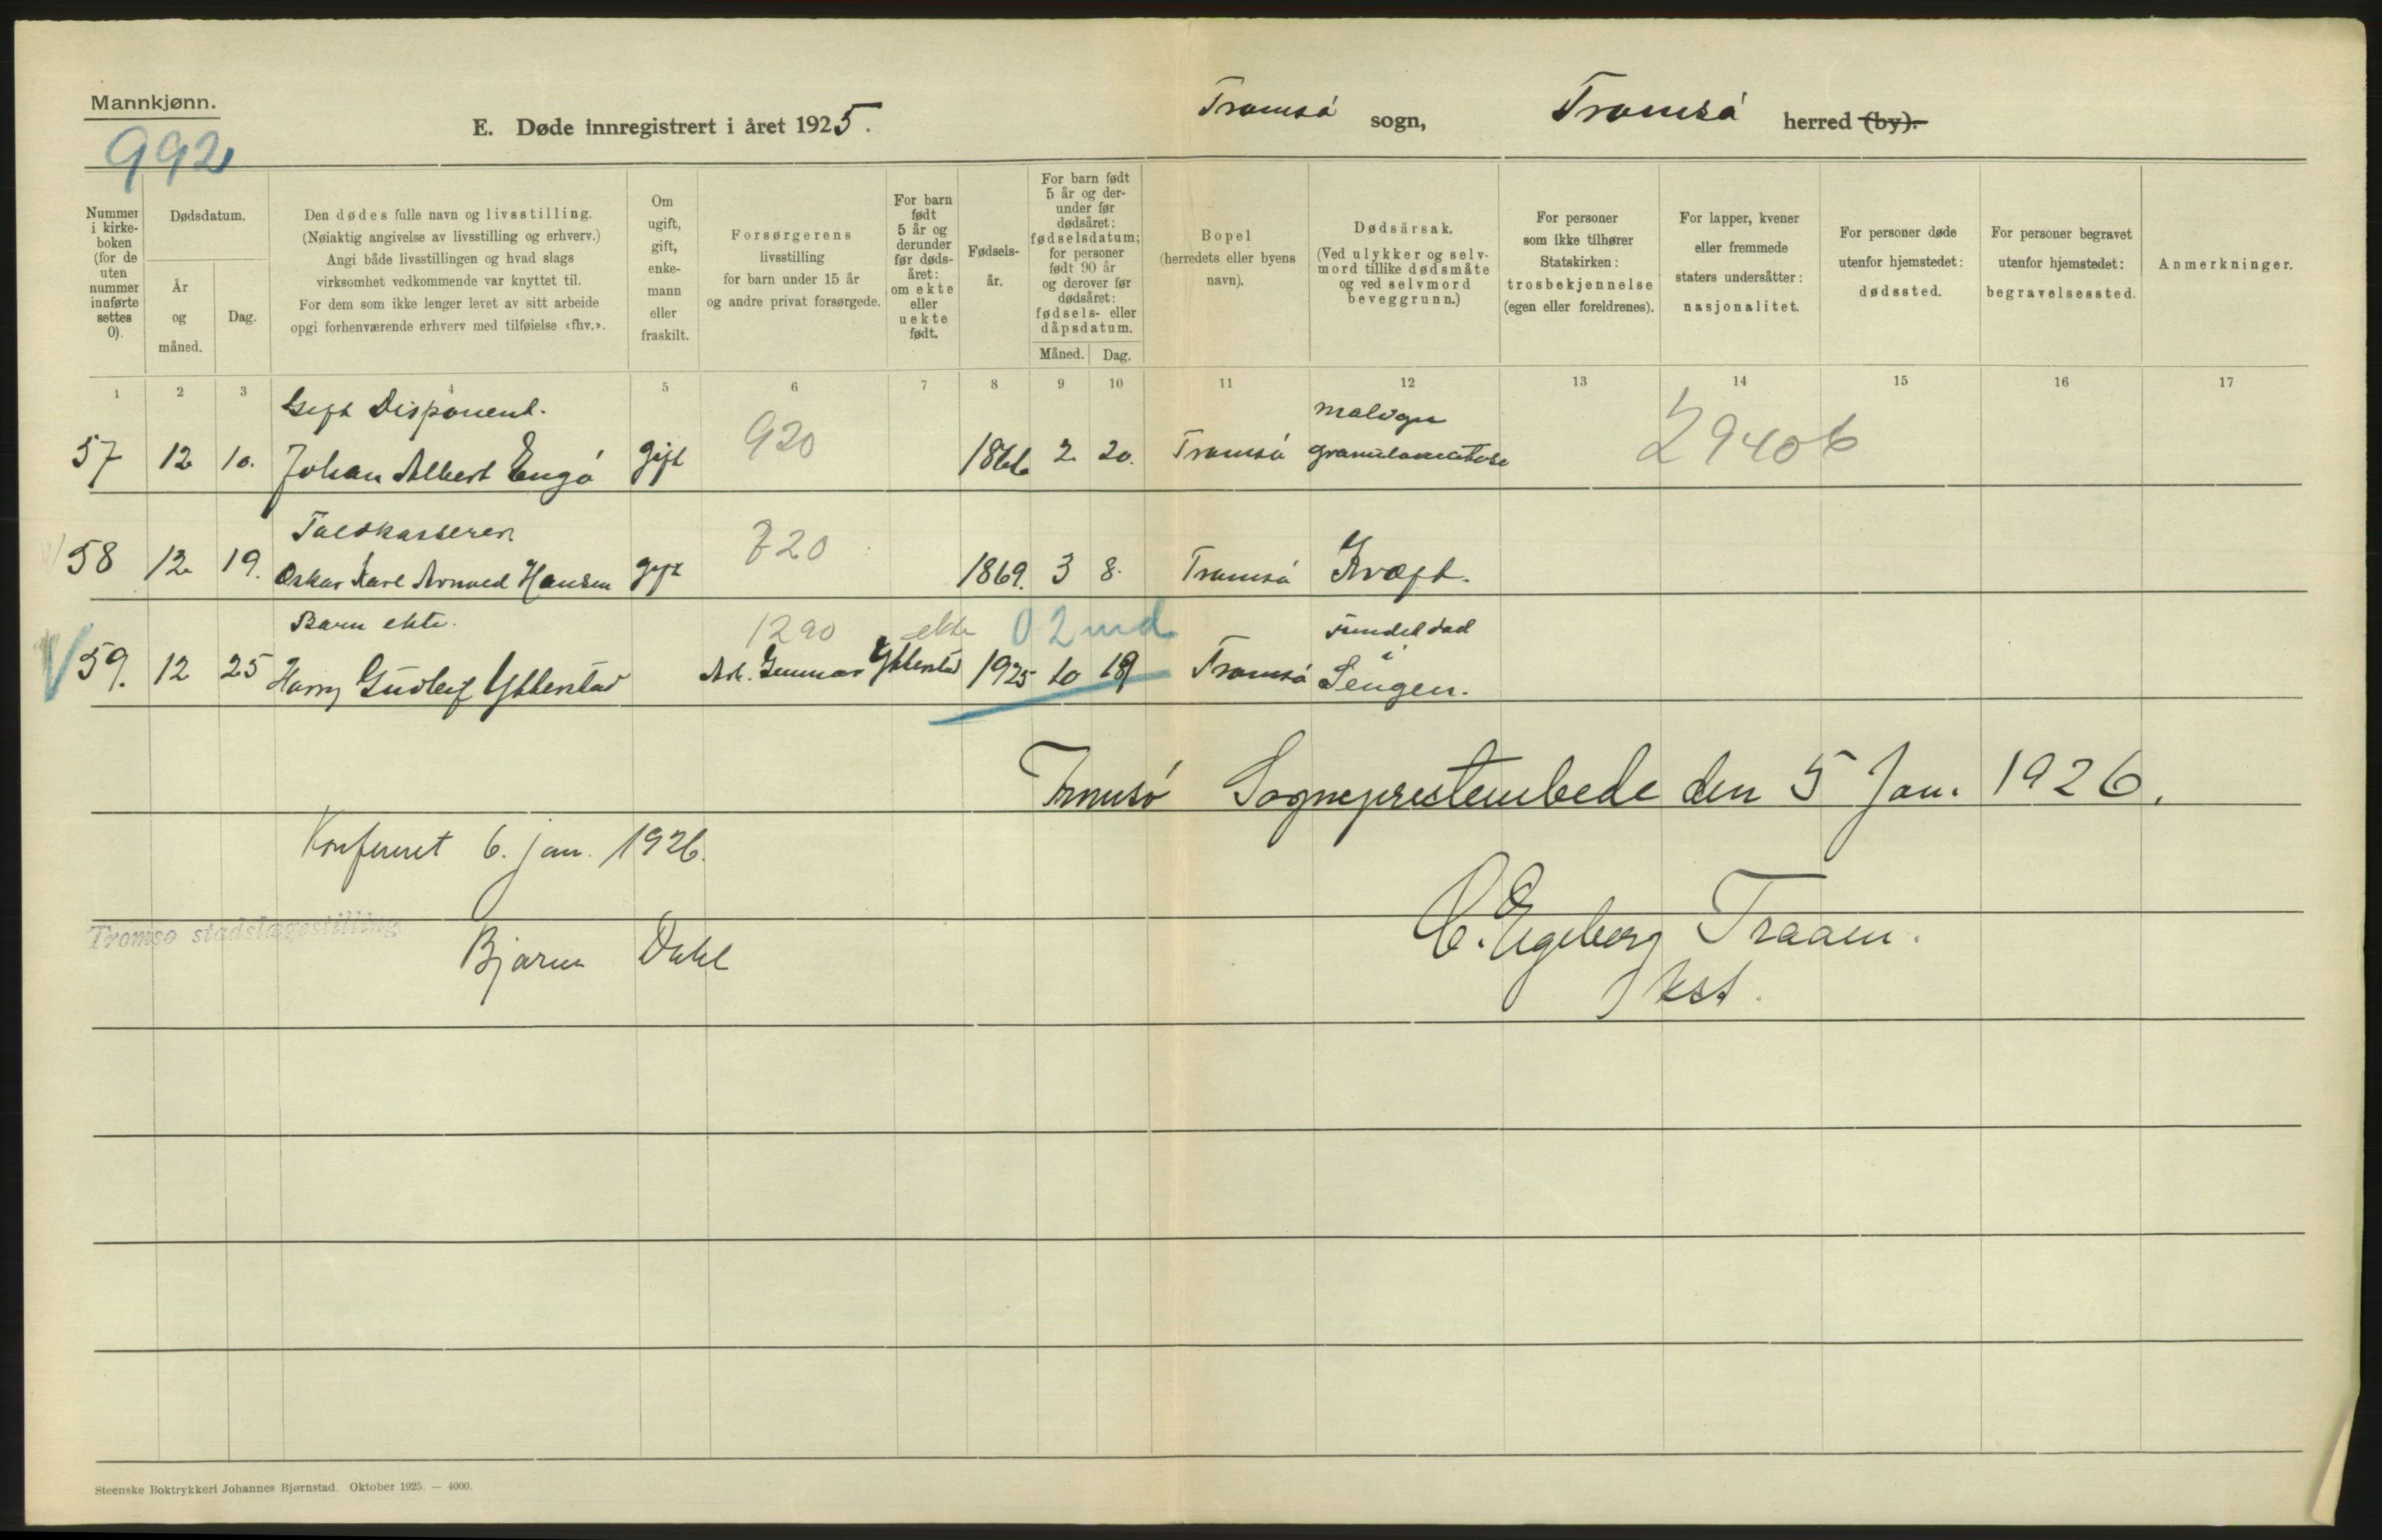 Mannkjønn.
992
E. Døde innregistrert i året 1925.
Tromsø sogn, Tromsø herred (by).
Nummer i kirkeboken (for de uten nummer innførte settes 0).
Dødsdatum.
År og måned.
Dag.
Den dødes fulle navn og livsstilling.
(Nøiaktig angivelse av livsstilling og erhverv.)
Angi både livsstillingen og hvad slags
virksomhet vedkommende var knyttet til.
For dem som ikke lenger levet av sitt arbeide
opgi forhenværende erhverv med tilføielse «fhv.».
Om ugift, gift, enkemann eller fraskilt.
Forsørgerens
livsstilling
for barn under 15 år
og andre privat forsørgede.
For barn født 5 år og derunder før dødsåret: om ekte eller uekte født.
Fødselsår.
For barn født 5 år og derunder før dødsåret: fødselsdatum; for personer født 90 år og derover før dødsåret: fødsels- eller dåpsdatum.
Måned. Dag.
Bopel
(herredets eller byens
navn).
Dødsårsak.
(Ved ulykker og selvmord tillike dødsmåte og ved selvmord beveggrunn.)
For personer
som ikke tilhører
Statskirken:
trosbekjennelse
(egen eller foreldrenes).
For lapper, kvener
eller fremmede
staters undersåtter:
nasjonalitet.
For personer døde
utenfor hjemstedet:
dødssted.
For personer begravet
utenfor hjemstedet:
begravelsessted.
Anmerkninger.
1 2 3 4 5 6 7 8 9 10 11 12 13 14 15 16 17
Gift Disponent. malign
57 12 10. Johan Albert Engø gift 920 1866 2 20. Tromsø granulomatose 29406
Toldkasserer
58 12 19. Oskar Karl Arnved Hansen gift 720 1869. 3 8. Tromsø Kræft.
Barn ekte. 1290 ekte 0 2 md Fundet død
59. 12 25 Harry Gudleif Ytterstad Arb. Gunnar Ytterstad 1925 10 18 Tromsø i Sengen.
Tromsø Sogneprestembede den 5 Jan. 1926.
Konferert 6. jan. 1926.
C. Egeberg Traaen.
kst.
Tromsø stadslægestilling
Bjarne Dahl
Steenske Boktrykkeri Johannes Bjørnstad. Oktober 1925. — 4000.